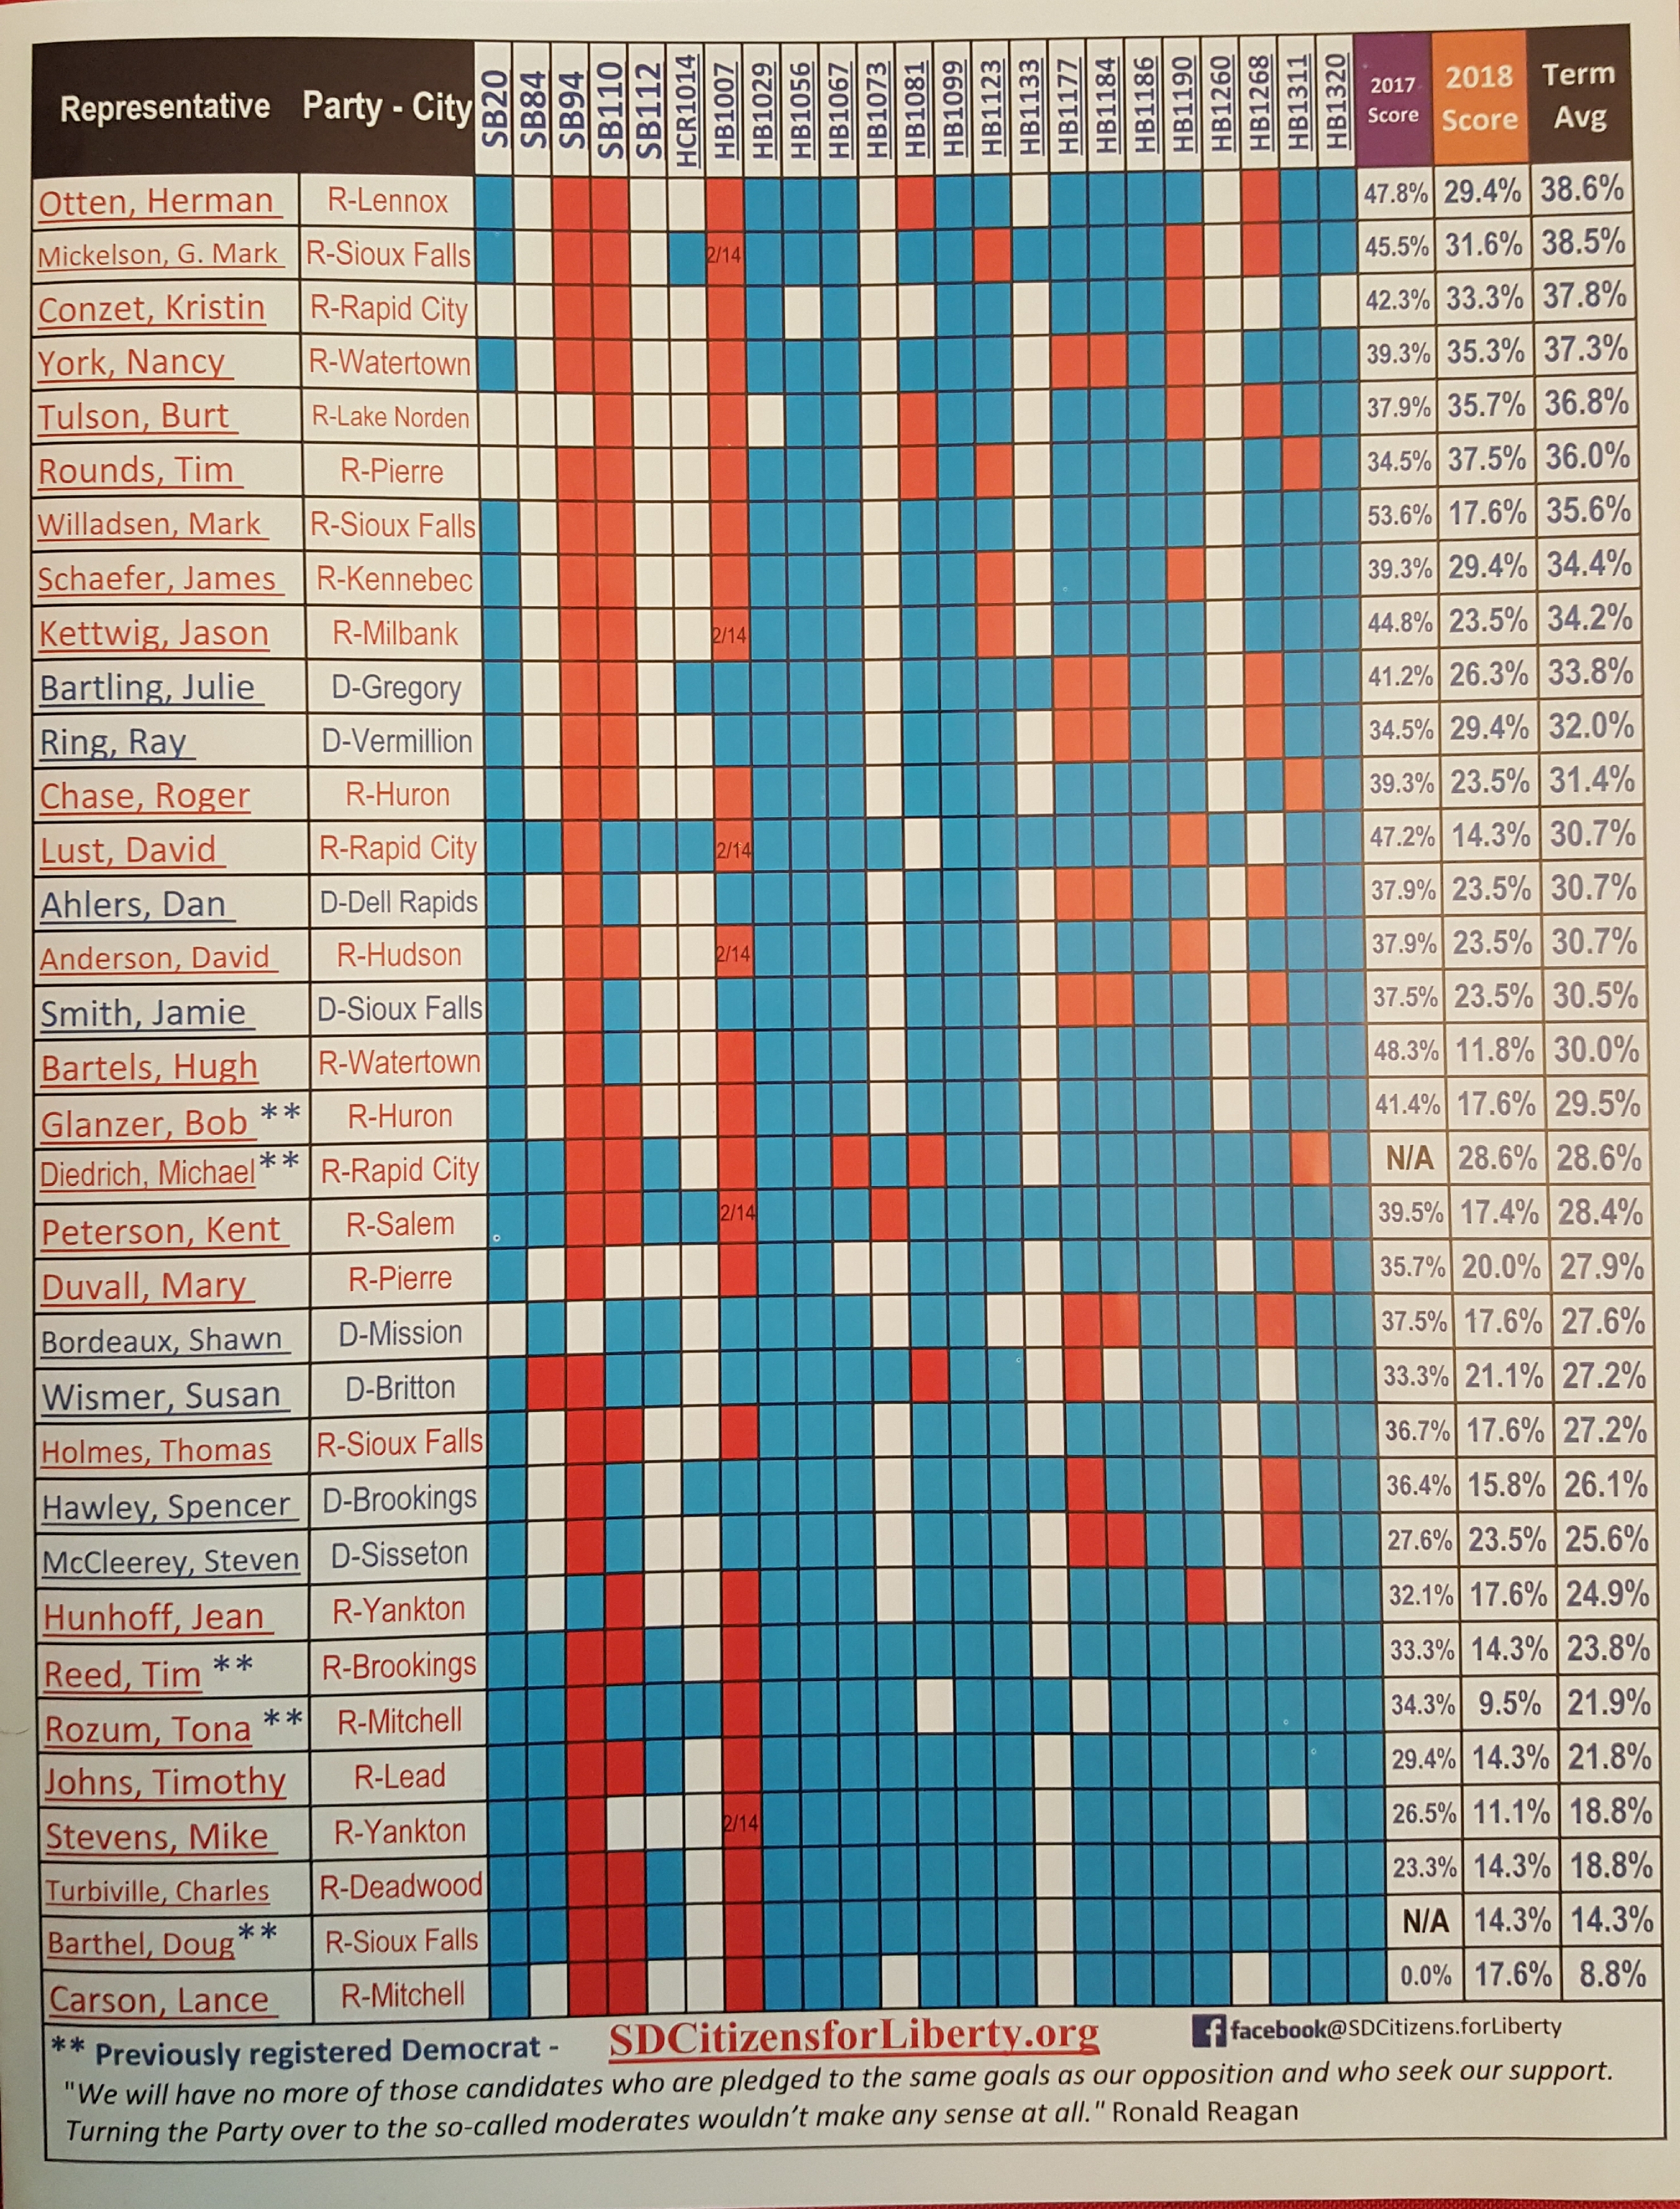 Representative Party - City SB20 SB84 SB94 SB110 SB112 HCR1014 HB1007 HB1029 HB1056 HB1067 HB1073 HB1081 HB1099 HB1123 HB1133 HB1177 HB1184 HB1186 HB1190 HB1260 HB1268 HB1311 HB1320 2017 Score 2018 Score Term Avg
Otten, Herman R-Lennox 47.8% 29.4% 38.6%
Mickelson, G. Mark R-Sioux Falls 2/14 45.5% 31.6% 38.5%
Conzet, Kristin R-Rapid City 42.3% 33.3% 37.8%
York, Nancy R-Watertown 39.3% 35.3% 37.3%
Tulson, Burt R-Lake Norden 37.9% 35.7% 36.8%
Rounds, Tim R-Pierre 34.5% 37.5% 36.0%
Willadsen, Mark R-Sioux Falls 53.6% 17.6% 35.6%
Schaefer, James R-Kennebec 39.3% 29.4% 34.4%
Kettwig, Jason R-Milbank 2/14 44.8% 23.5% 34.2%
Bartling, Julie D-Gregory 41.2% 26.3% 33.8%
Ring, Ray D-Vermillion 34.5% 29.4% 32.0%
Chase, Roger R-Huron 39.3% 23.5% 31.4%
Lust, David R-Rapid City 2/14 47.2% 14.3% 30.7%
Ahlers, Dan D-Dell Rapids 37.9% 23.5% 30.7%
Anderson, David R-Hudson 2/14 37.9% 23.5% 30.7%
Smith, Jamie D-Sioux Falls 37.5% 23.5% 30.5%
Bartels, Hugh R-Watertown 48.3% 11.8% 30.0%
Glanzer, Bob ** R-Huron 41.4% 17.6% 29.5%
Diedrich, Michael** R-Rapid City N/A 28.6% 28.6%
Peterson, Kent R-Salem 2/14 39.5% 17.4% 28.4%
Duvall, Mary R-Pierre 35.7% 20.0% 27.9%
Bordeaux, Shawn D-Mission 37.5% 17.6% 27.6%
Wismer, Susan D-Britton 33.3% 21.1% 27.2%
Holmes, Thomas R-Sioux Falls 36.7% 17.6% 27.2%
Hawley, Spencer D-Brookings 36.4% 15.8% 26.1%
McCleerey, Steven D-Sisseton 27.6% 23.5% 25.6%
Hunhoff, Jean R-Yankton 32.1% 17.6% 24.9%
Reed, Tim ** R-Brookings 33.3% 14.3% 23.8%
Rozum, Tona ** R-Mitchell 34.3% 9.5% 21.9%
Johns, Timothy R-Lead 29.4% 14.3% 21.8%
Stevens, Mike R-Yankton 2/14 26.5% 11.1% 18.8%
Turbiville, Charles R-Deadwood 23.3% 14.3% 18.8%
Barthel, Doug** R-Sioux Falls N/A 14.3% 14.3%
Carson, Lance R-Mitchell 0.0% 17.6% 8.8%
** Previously registered Democrat - SDCitizensforLiberty.org facebook@SDCitizens.forLiberty
"We will have no more of those candidates who are pledged to the same goals as our opposition and who seek our support.
Turning the Party over to the so-called moderates wouldn't make any sense at all." Ronald Reagan